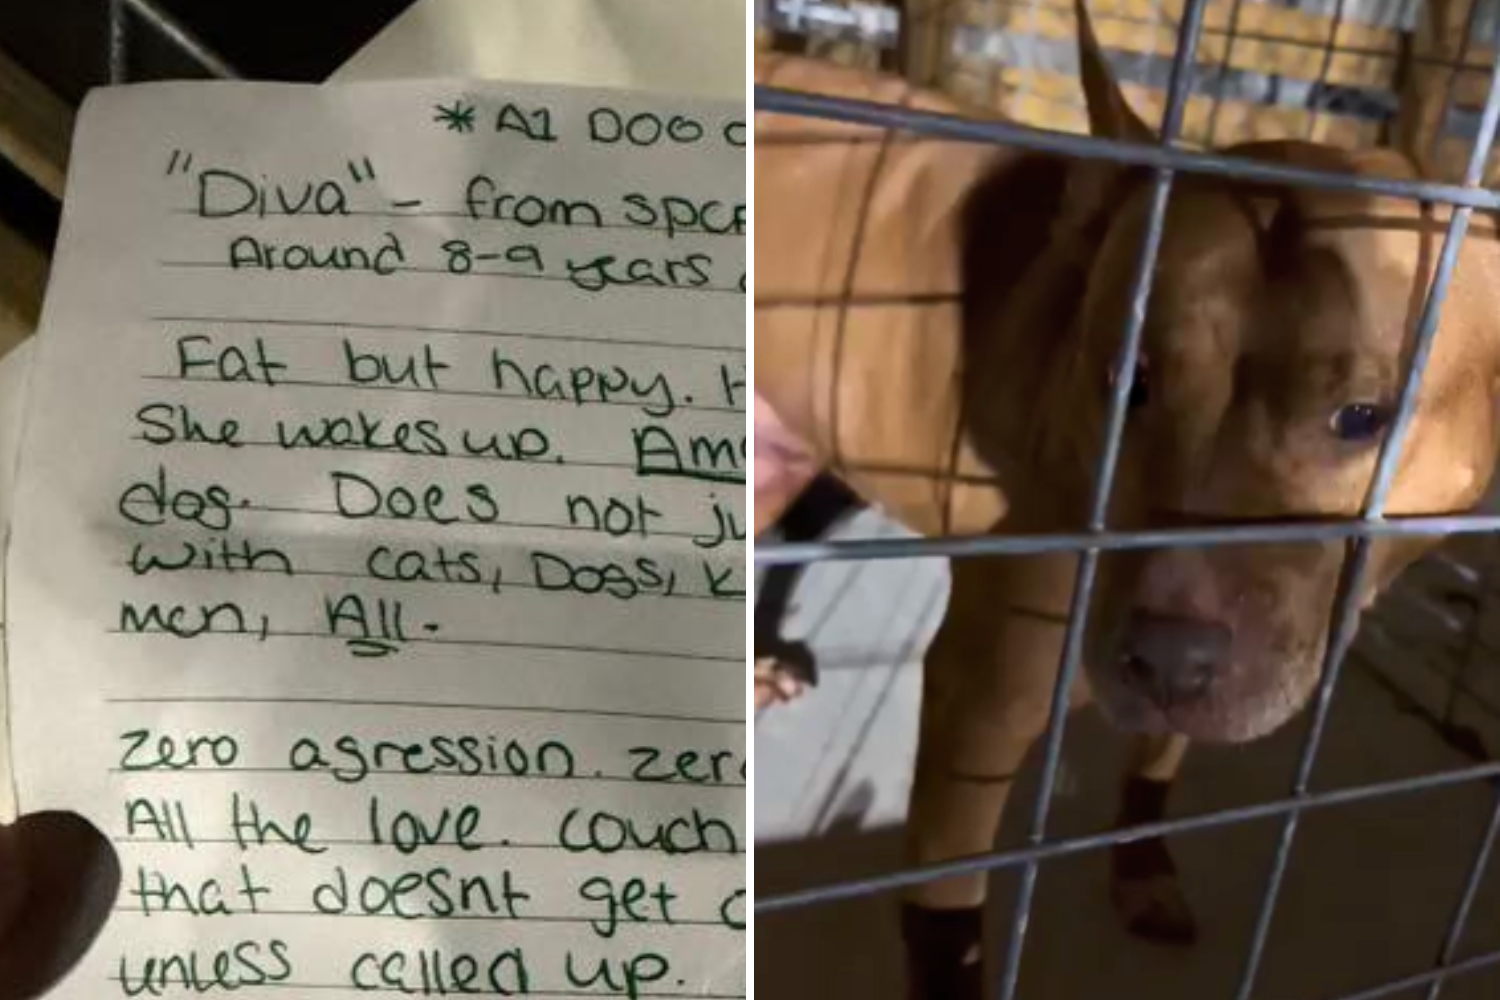 * A1 DOG
"Diva" - from SPC
Around 8-9 years
Fat but happy.
She wakes up.
dog. Does not
with cats, Dogs,
men, All.
zero agression. zer
All the love. couch
that doesnt get
unless called up.